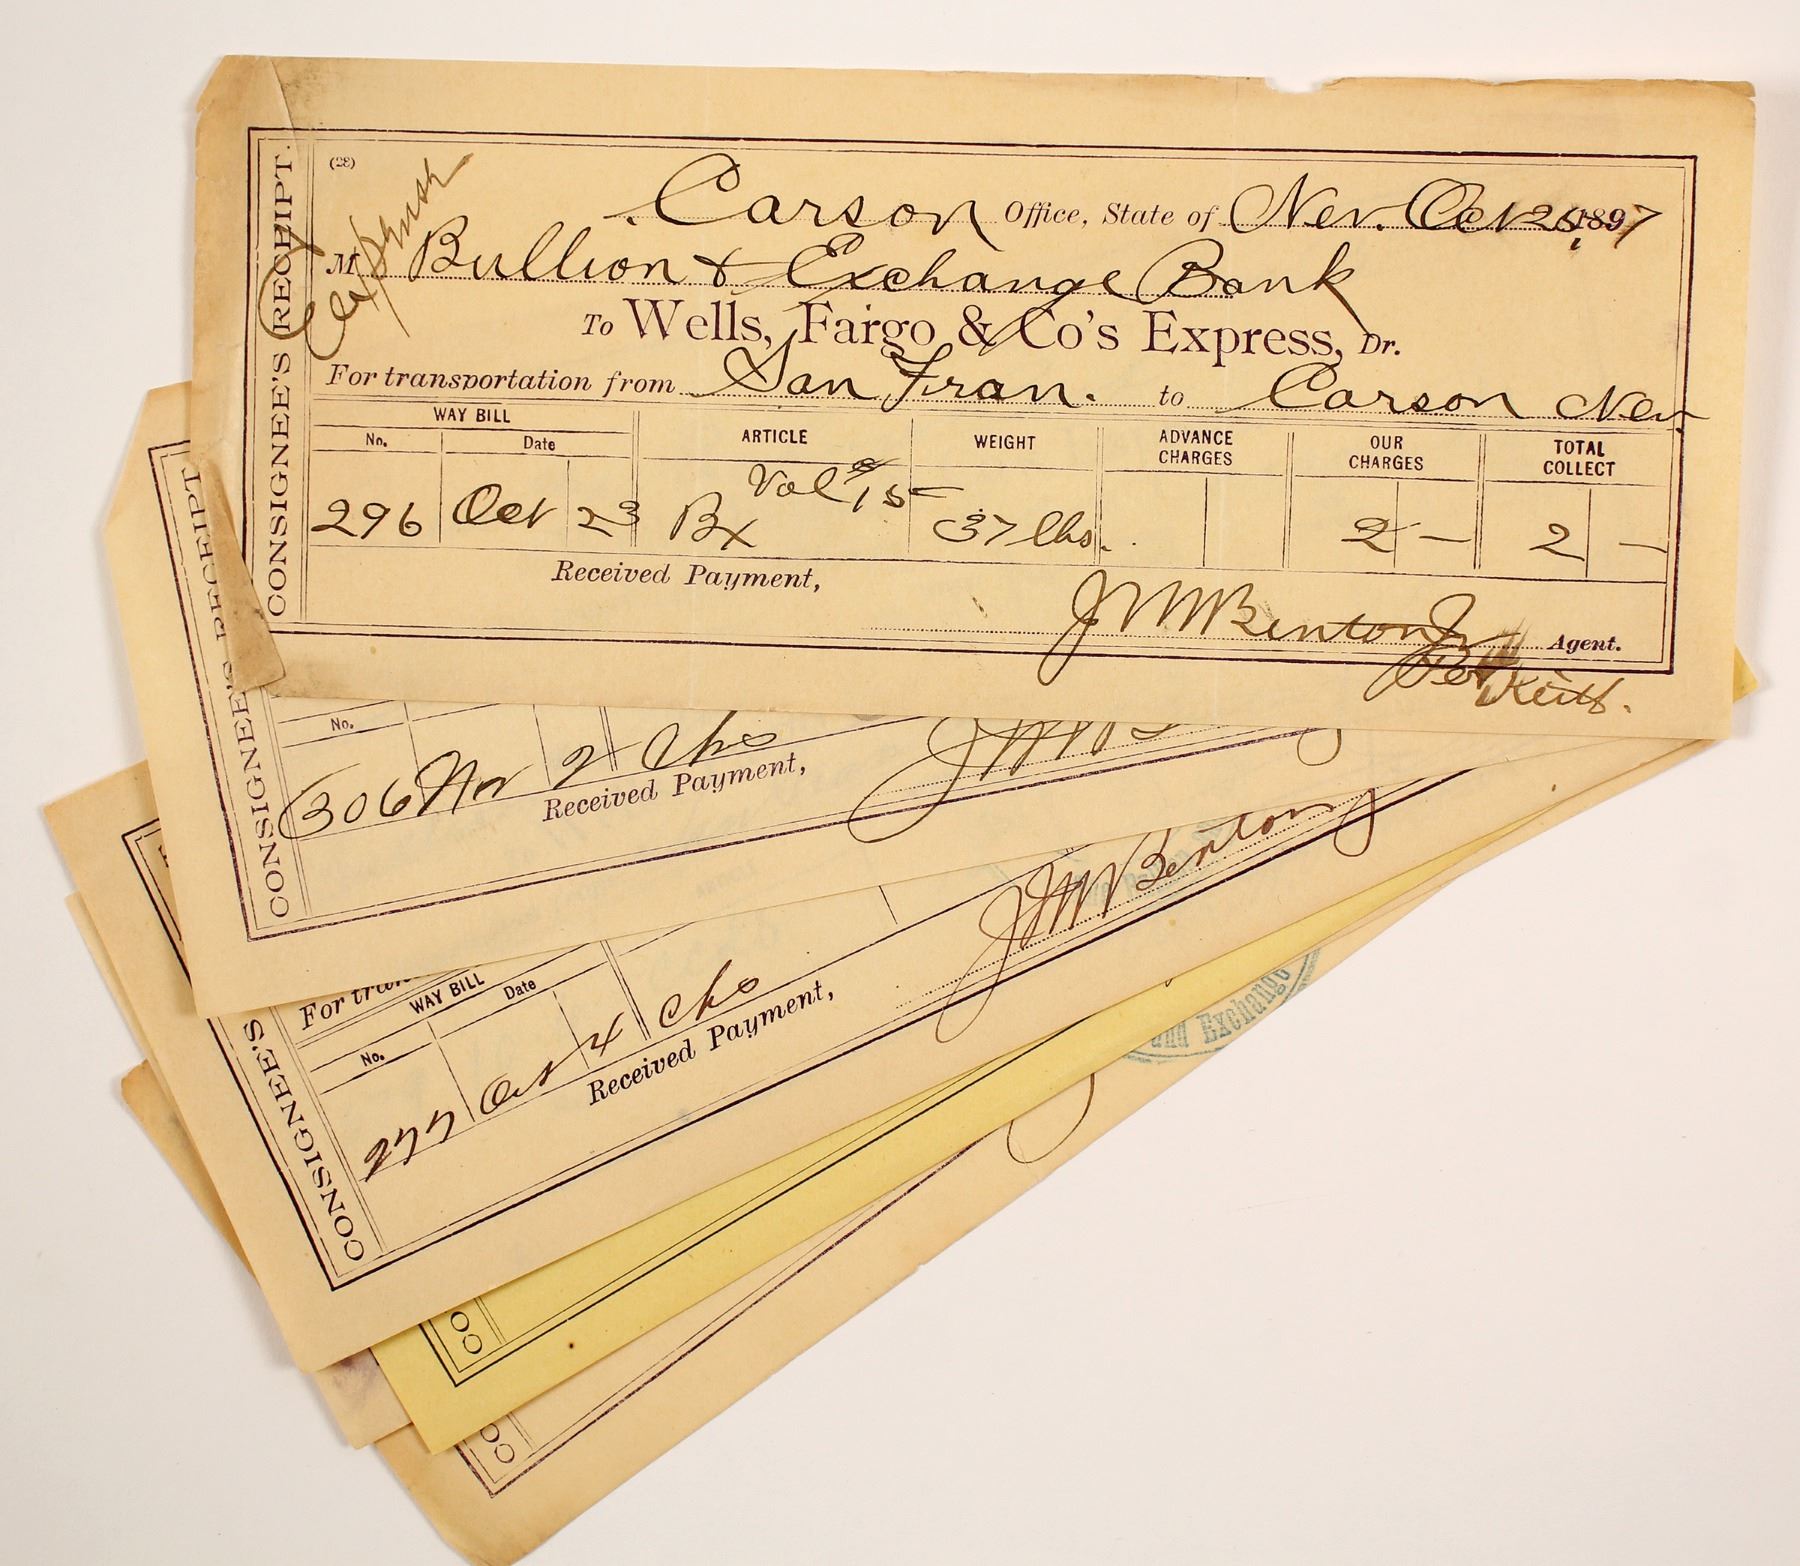 (28)
CONSIGNEE'S RECEIPT.
Carson Office, State of Nev. Oct 25, 1897
M Bullion & Exchange Bank
To Wells, Fargo & Co's Express, Dr.
For transportation from San Fran. to Carson Nev.
WAY BILL ARTICLE WEIGHT ADVANCE CHARGES OUR CHARGES TOTAL COLLECT
No. Date
Val
296 Oct 23 Bx 37 lbs. 2 — 2 —
Received Payment,
J M Benton Jr Agent.
Per Keith.
CONSIGNEE'S RECEIPT
No.
306 Nov 2
Received Payment,
For tran
CONSIGNEE'S
WAY BILL
No. Date
277 Oct 4
Received Payment,
Benton
and Exchange
CO
CO